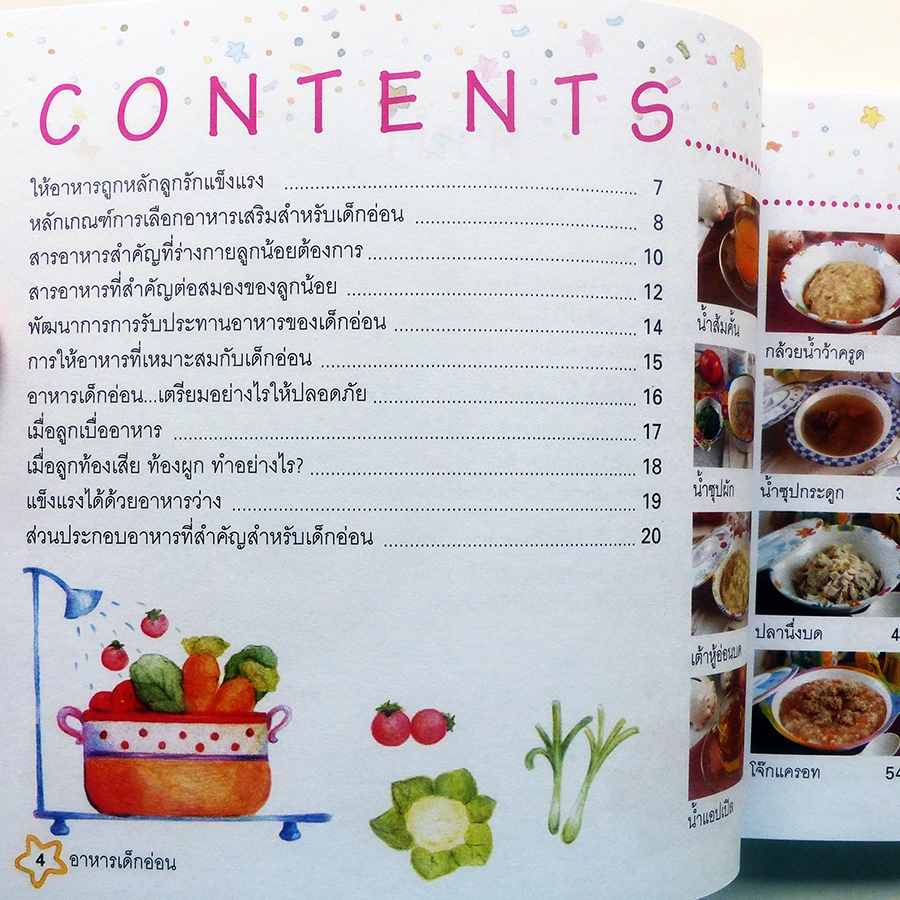 CONTENTS
ให้อาหารถูกหลักลูกรักแข็งแรง 7
หลักเกณฑ์การเลือกอาหารเสริมสำหรับเด็กอ่อน 8
สารอาหารสำคัญที่ร่างกายลูกน้อยต้องการ 10
สารอาหารที่สำคัญต่อสมองของลูกน้อย 12
พัฒนาการการรับประทานอาหารของเด็กอ่อน 14
การให้อาหารที่เหมาะสมกับเด็กอ่อน 15
อาหารเด็กอ่อน...เตรียมอย่างไรให้ปลอดภัย 16
เมื่อลูกเบื่ออาหาร 17
เมื่อลูกท้องเสีย ท้องผูก ทำอย่างไร? 18
แข็งแรงได้ด้วยอาหารว่าง 19
ส่วนประกอบอาหารที่สำคัญสำหรับเด็กอ่อน 20
4 อาหารเด็กอ่อน
น้ำส้มคั้น
น้ำซุปผัก
เต้าหู้อ่อนบด
น้ำแอปเปิล
กล้วยน้ำว้าครูด
น้ำซุปกระดูก 3
ปลานึ่งบด 4
โจ๊กแครอท 54